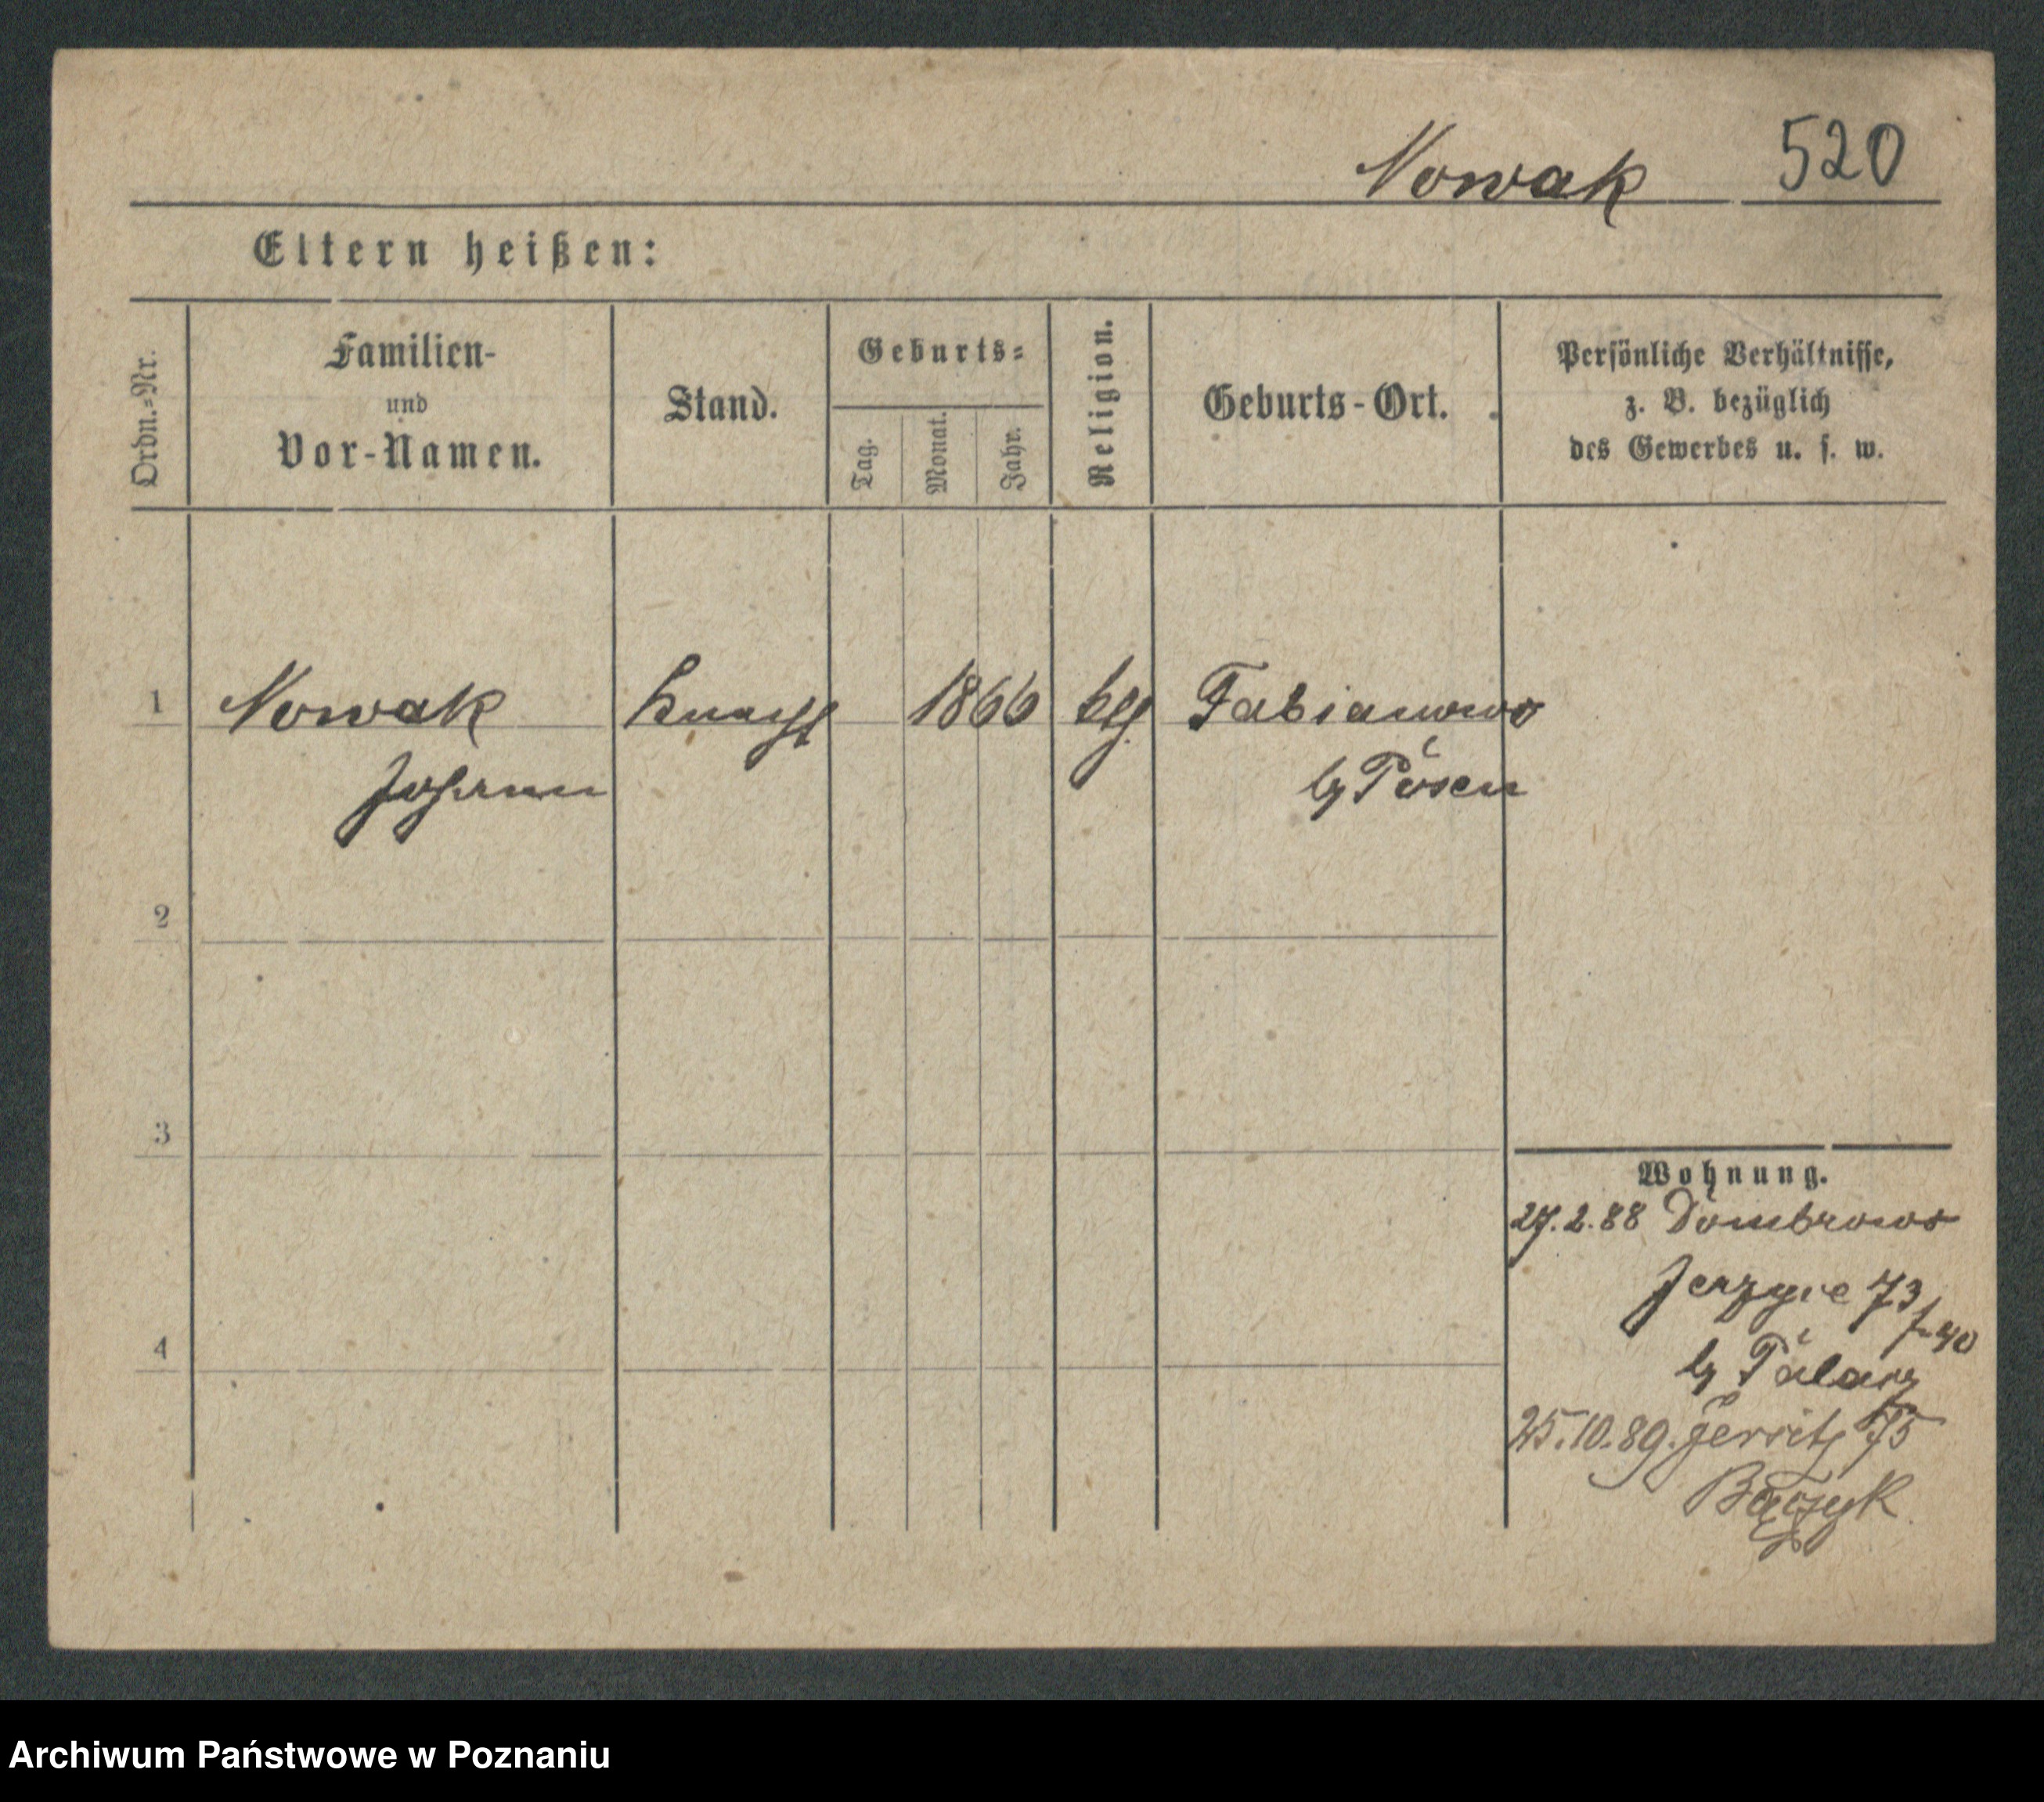 Nowak 520
Eltern heißen:
Ordn.=Nr.
Familien-
und
Vor-Namen.
Stand.
Geburts=
Tag.
Monat.
Jahr.
Religion.
Geburts-Ort.
Persönliche Verhältnisse,
z. B. bezüglich
des Gewerbes u. s. w.
1 Nowak Knecht 1866 Fabianowo
Johann Posen
2
3
4
Wohnung.
27.2.88 Dombrowo
Jerzyce 73
25.10.89. Jersitz 75
Archiwum Państwowe w Poznaniu